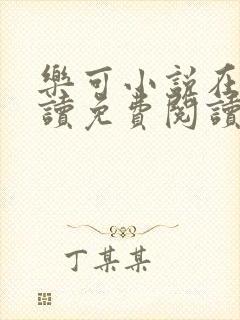 樂可小說在
讀免費閱讀
丁某某